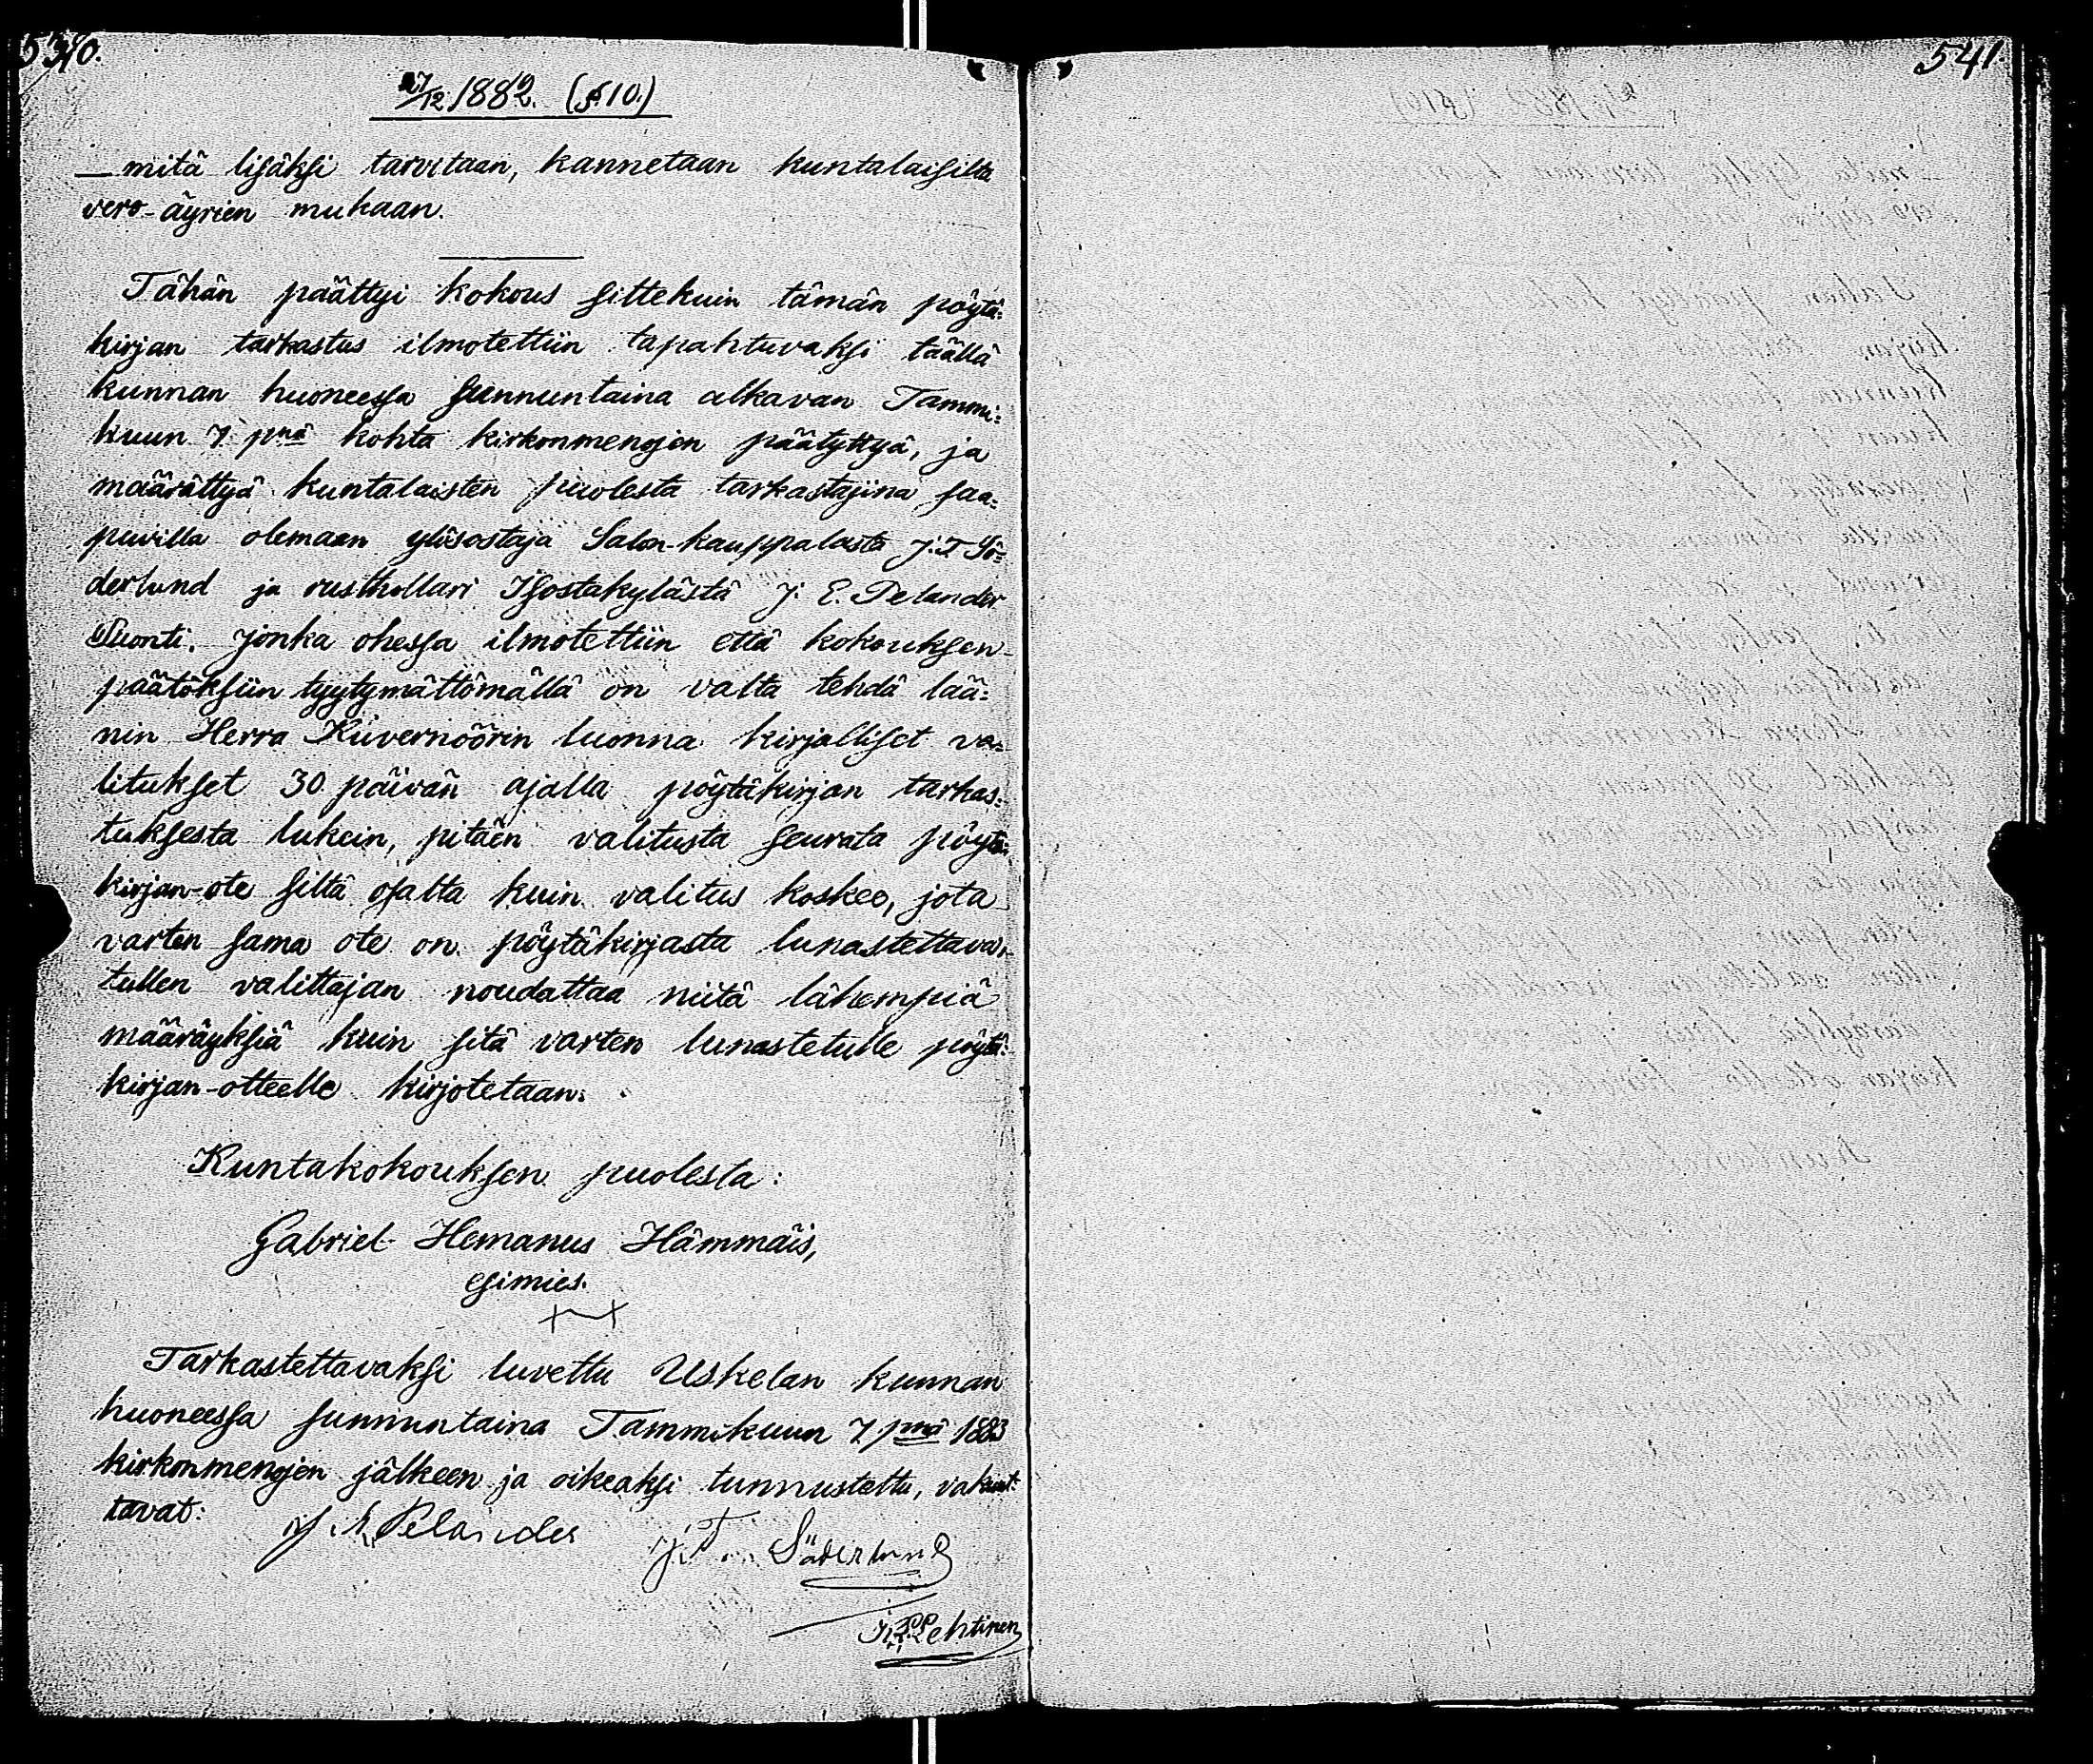 540.
27/12 1882. (§ 10.)
— mitä lisäksi tarvitaan, kannetaan kuntalaisilta
vero-äyrien mukaan.
Tähän päättyi kokous sittekuin tämän pöytä=
kirjan tarkastus ilmotettiin tapahtuvaksi täällä
kunnan huoneessa sunnuntaina alkavan Tammi=
kuun 7 pnä kohta kirkonmenojen päätyttyä, ja
määrättyä kuntalaisten puolesta tarkastajina saa=
puvilla olemaan ylösostaja Salon-kauppalasta J. T. Sö=
derlund ja rusthollari Isostakylästä J. E. Pelander
Nuonti. Jonka ohessa ilmotettiin että kokouksen
päätöksiin tyytymättömällä on valta tehdä lää=
nin Herra Kuvernöörin luonna kirjalliset va=
litukset 30 päivän ajalla pöytäkirjan tarkas=
tuksesta lukein, pitäen valitusta seurata pöytä=
kirjan-ote siltä osalta kuin valitus koskee, jota
varten sama ote on pöytäkirjasta lunastettava,
tullen valittajan noudattaa niitä lähempiä
määräyksiä kuin sitä varten lunastetulle pöytä=
kirjan-otteelle kirjotetaan.
Kuntakokouksen puolesta:
Gabriel Hemanus Hämmäis,
esimies.
Tarkastettavaksi luvettu Uskelan kunnan
huoneessa sunnuntaina Tammikuun 7 pnä 1883
kirkonmenojen jälkeen ja oikeaksi tunnustettu, vakuut=
tavat:
J. E. Pelander
J. T. Söderlund
Lehtinen
541.